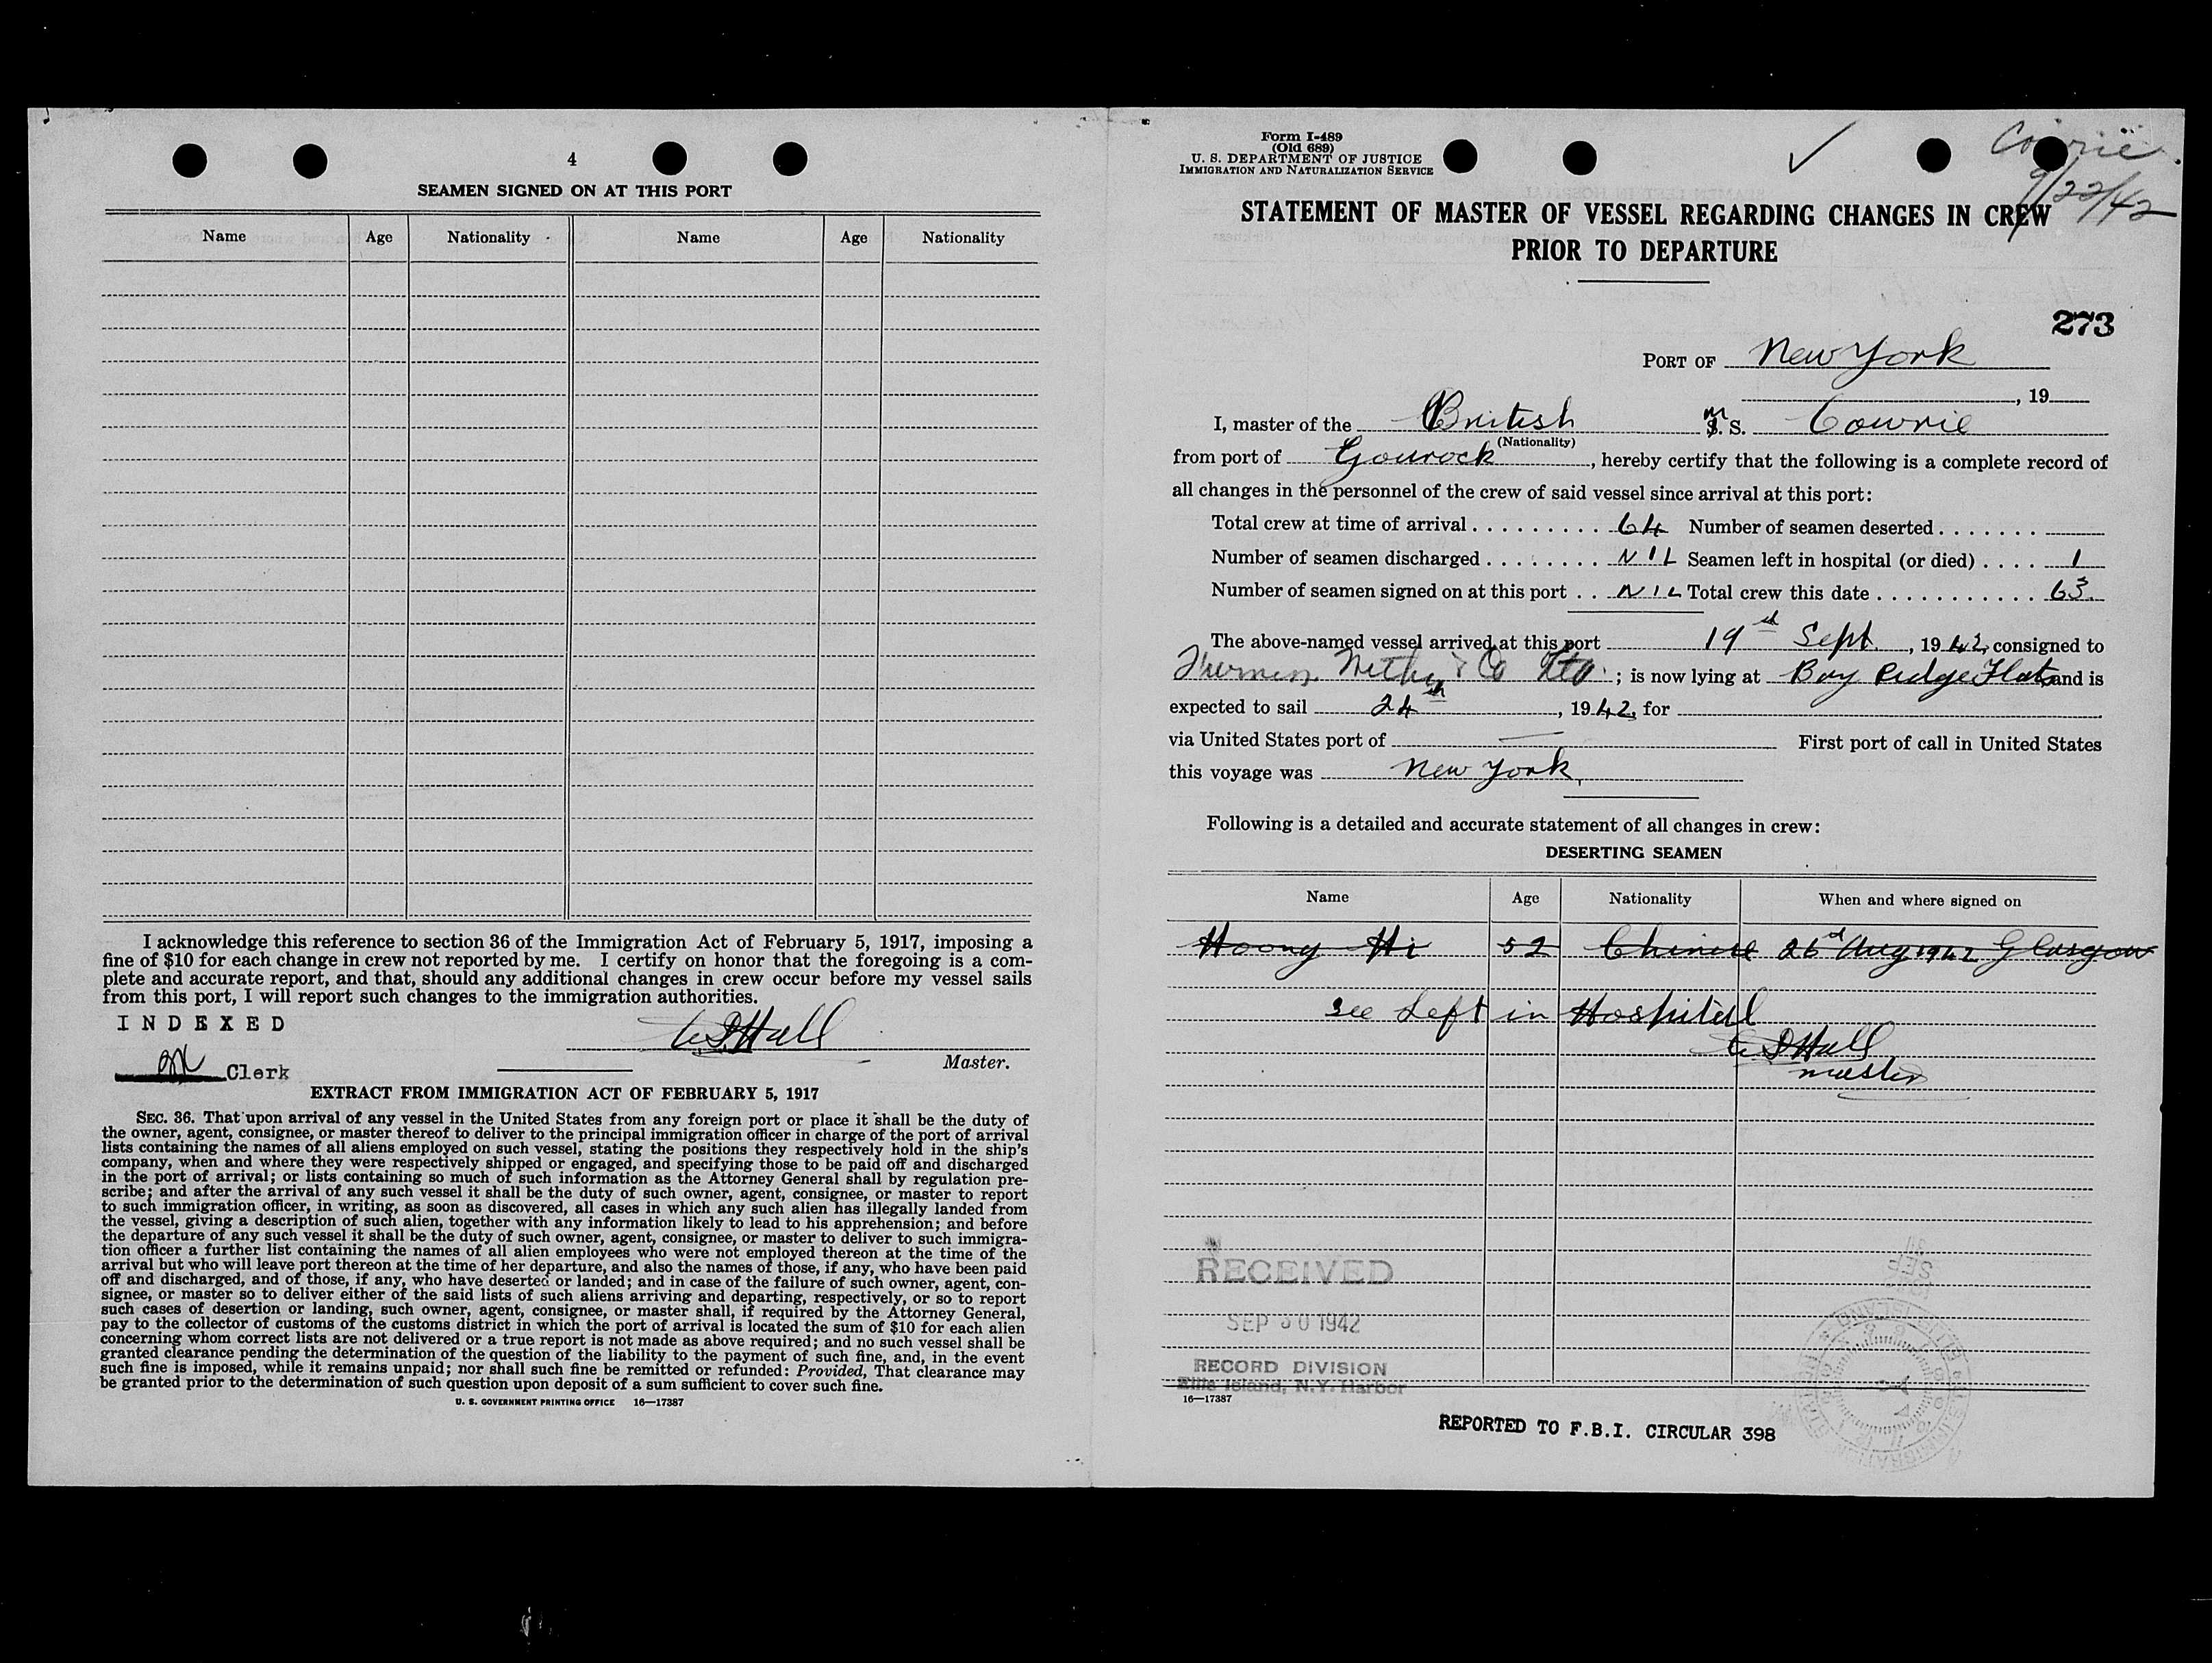 4
SEAMEN SIGNED ON AT THIS PORT
Name Age Nationality Name Age Nationality
I acknowledge this reference to section 36 of the Immigration Act of February 5, 1917, imposing a
fine of $10 for each change in crew not reported by me. I certify on honor that the foregoing is a com-
plete and accurate report, and that, should any additional changes in crew occur before my vessel sails
from this port, I will report such changes to the immigration authorities.
INDEXED
Hall
Clerk
Master.
EXTRACT FROM IMMIGRATION ACT OF FEBRUARY 5, 1917
SEC. 36. That upon arrival of any vessel in the United States from any foreign port or place it shall be the duty of
the owner, agent, consignee, or master thereof to deliver to the principal immigration officer in charge of the port of arrival
lists containing the names of all aliens employed on such vessel, stating the positions they respectively hold in the ship's
company, when and where they were respectively shipped or engaged, and specifying those to be paid off and discharged
in the port of arrival; or lists containing so much of such information as the Attorney General shall by regulation pre-
scribe; and after the arrival of any such vessel it shall be the duty of such owner, agent, consignee, or master to report
to such immigration officer, in writing, as soon as discovered, all cases in which any such alien has illegally landed from
the vessel, giving a description of such alien, together with any information likely to lead to his apprehension; and before
the departure of any such vessel it shall be the duty of such owner, agent, consignee, or master to deliver to such immigra-
tion officer a further list containing the names of all alien employees who were not employed thereon at the time of the
arrival but who will leave port thereon at the time of her departure, and also the names of those, if any, who have been paid
off and discharged, and of those, if any, who have deserted or landed; and in case of the failure of such owner, agent, con-
signee, or master so to deliver either of the said lists of such aliens arriving and departing, respectively, or so to report
such cases of desertion or landing, such owner, agent, consignee, or master shall, if required by the Attorney General,
pay to the collector of customs of the customs district in which the port of arrival is located the sum of $10 for each alien
concerning whom correct lists are not delivered or a true report is not made as above required; and no such vessel shall be
granted clearance pending the determination of the question of the liability to the payment of such fine, and, in the event
such fine is imposed, while it remains unpaid; nor shall such fine be remitted or refunded: Provided, That clearance may
be granted prior to the determination of such question upon deposit of a sum sufficient to cover such fine.
U. S. GOVERNMENT PRINTING OFFICE 16—17387
Form I-489
(Old 689)
U. S. DEPARTMENT OF JUSTICE
IMMIGRATION AND NATURALIZATION SERVICE
9/22/42
STATEMENT OF MASTER OF VESSEL REGARDING CHANGES IN CREW
PRIOR TO DEPARTURE
273
PORT OF New York
, 19
I, master of the British M. S. Cowrie
(Nationality)
from port of Gourock, hereby certify that the following is a complete record of
all changes in the personnel of the crew of said vessel since arrival at this port:
Total crew at time of arrival 64 Number of seamen deserted
Number of seamen discharged NIL Seamen left in hospital (or died) 1
Number of seamen signed on at this port NIL Total crew this date 63
The above-named vessel arrived at this port 19 Sept., 1942, consigned to
& Co Ltd; is now lying at Bay Ridge Flats and is
expected to sail 24th, 1942, for
via United States port of — First port of call in United States
this voyage was New York.
Following is a detailed and accurate statement of all changes in crew:
DESERTING SEAMEN
Name Age Nationality When and where signed on
Hoong Hi 52 Chinese 26 Aug 1942 Glasgow
see Left in Hospital
Hall
master
RECEIVED
SEP 30 1942
RECORD DIVISION
Ellis Island, N.Y. Harbor
16—17387
REPORTED TO F.B.I. CIRCULAR 398